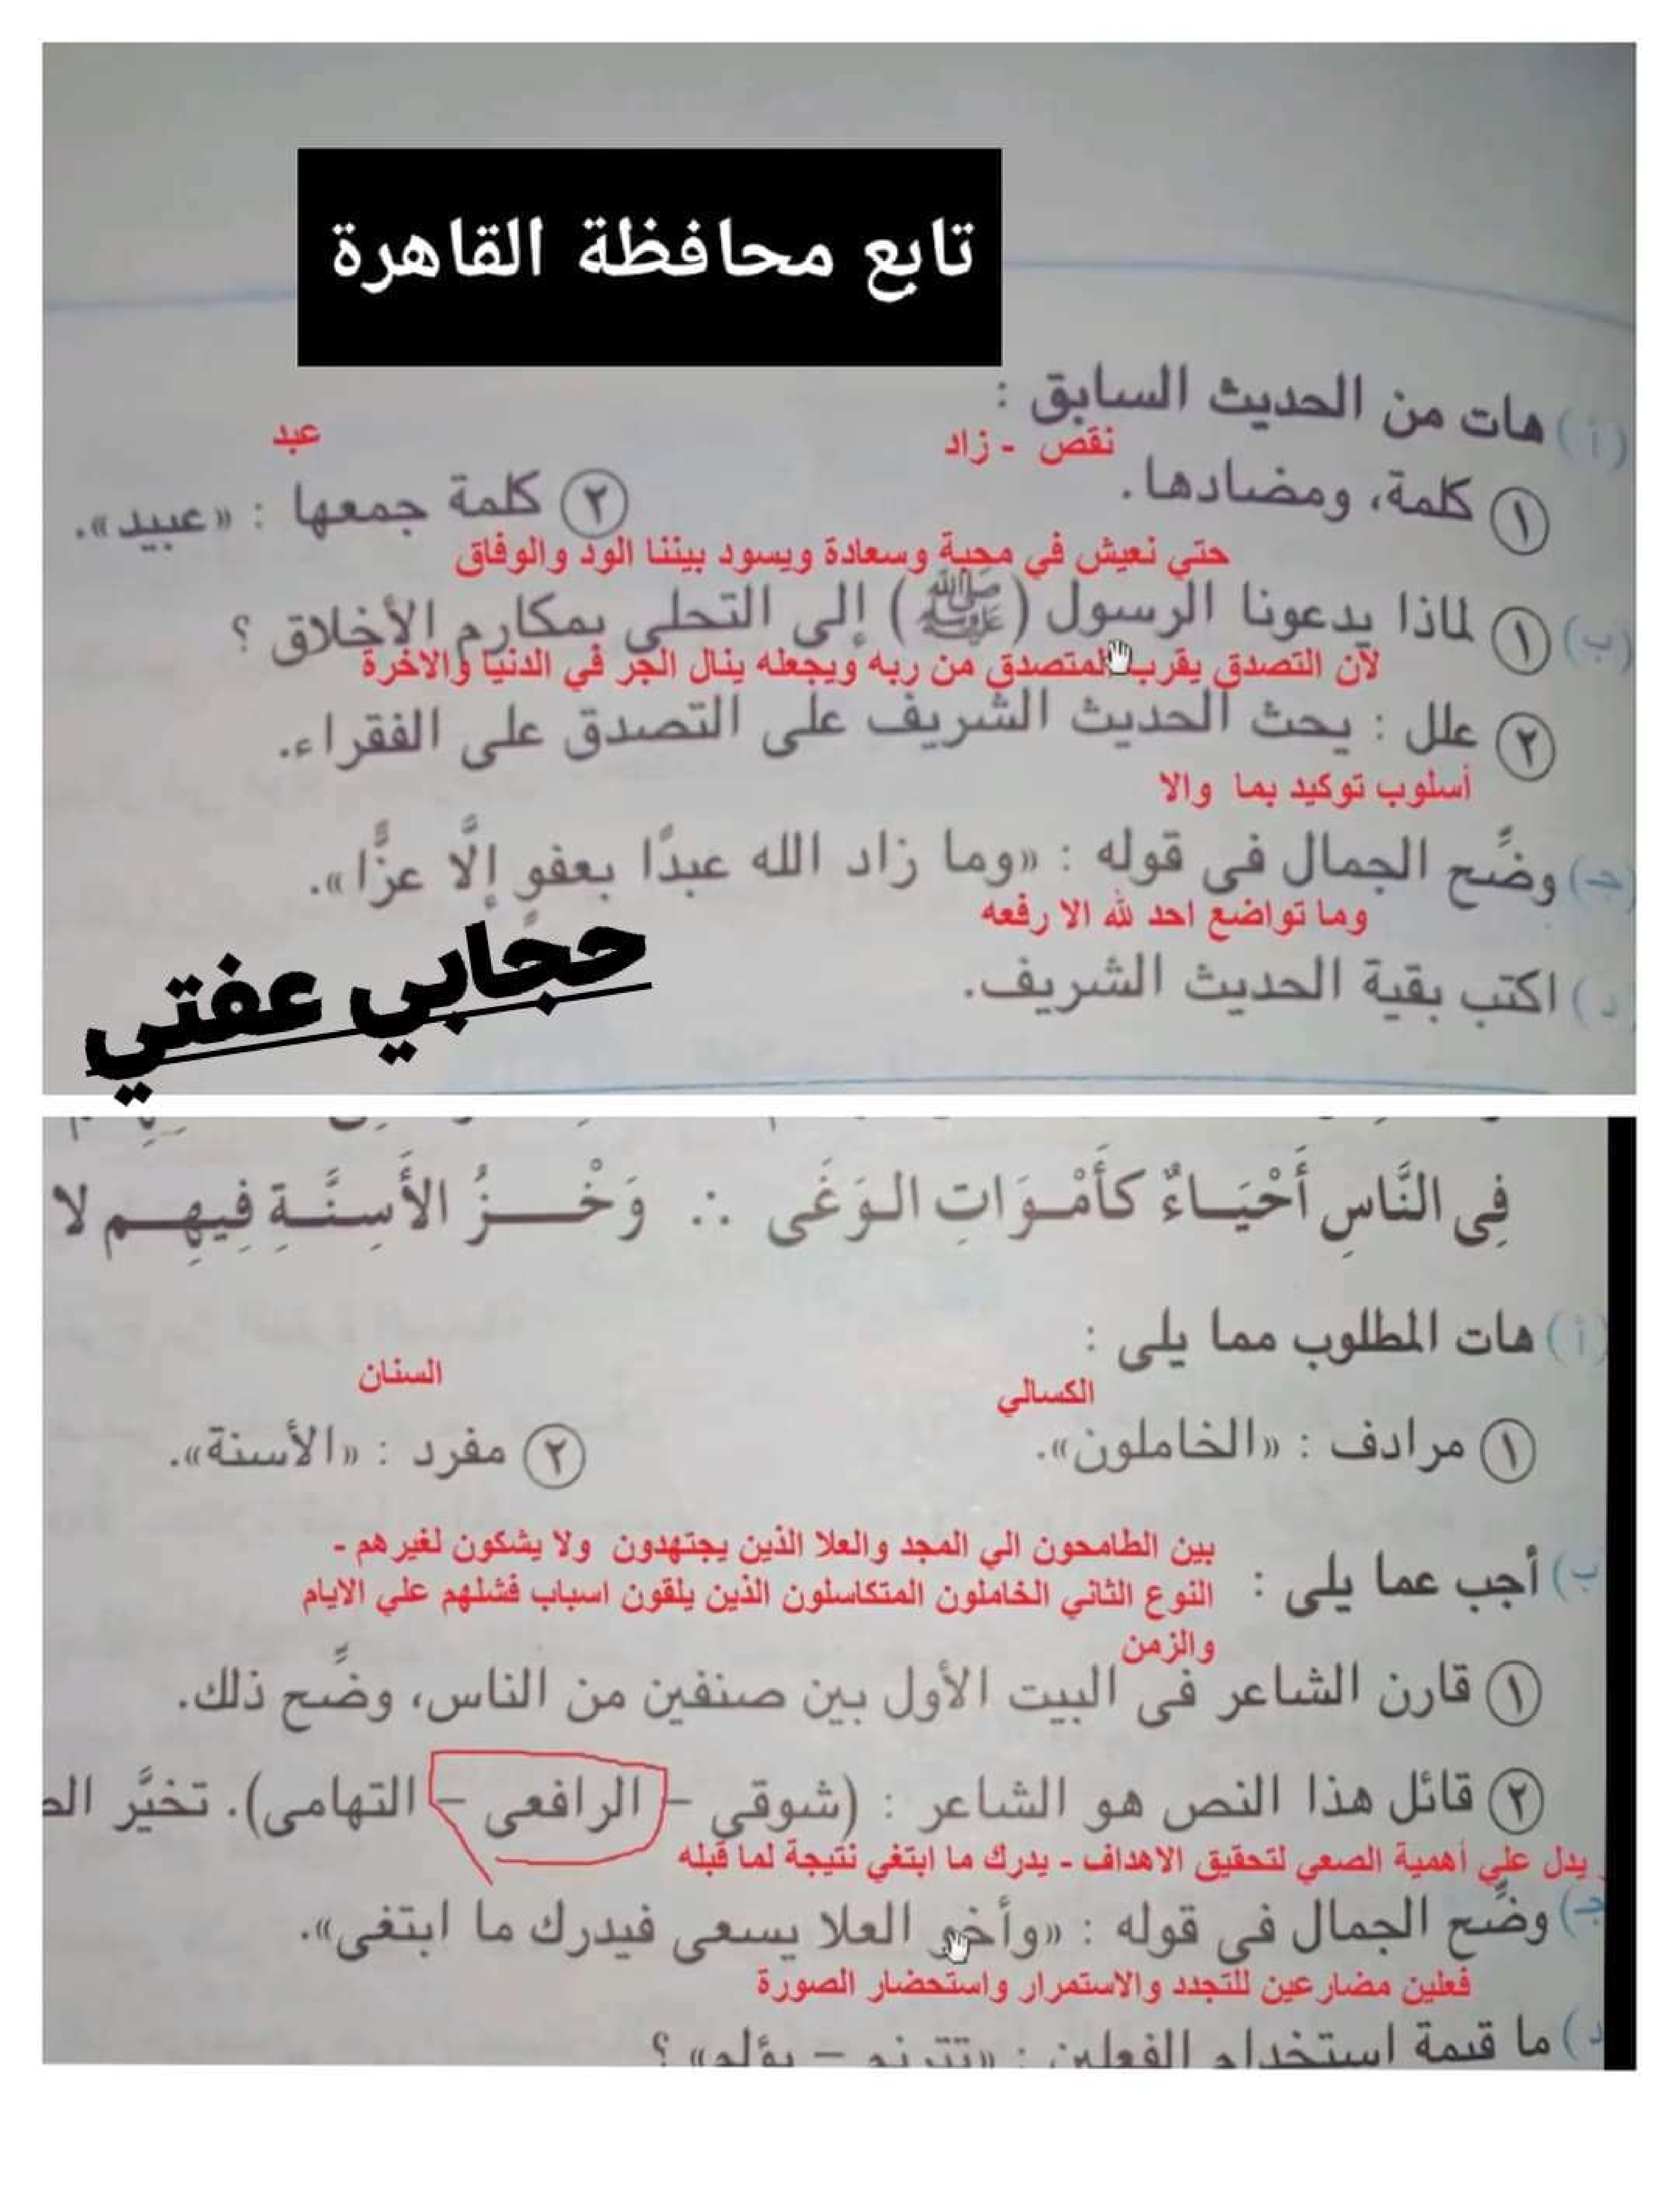 تابع محافظة القاهرة
(أ) هات من الحديث السابق :
نقص - زاد
عبد
١ كلمة، ومضادها.
٢ كلمة جمعها : «عبيد».
حتي نعيش في محبة وسعادة ويسود بيننا الود والوفاق
(ب) ١ لماذا يدعونا الرسول (ﷺ) إلى التحلى بمكارم الأخلاق ؟
لأن التصدق يقرب المتصدق من ربه ويجعله ينال الجر في الدنيا والاخرة
٢ علل : يحث الحديث الشريف على التصدق على الفقراء.
أسلوب توكيد بما والا
(جـ) وضِّح الجمال فى قوله : «وما زاد الله عبدًا بعفوٍ إلَّا عزًّا».
وما تواضع احد لله الا رفعه
(د) اكتب بقية الحديث الشريف.
حجابي عفتي
فِى النَّاسِ أَحْيَاءٌ كَأَمْوَاتِ الوَغَى ∴ وَخْزُ الأَسِنَّةِ فِيهِم لا
(أ) هات المطلوب مما يلى :
الكسالي
السنان
١ مرادف : «الخاملون».
٢ مفرد : «الأسنة».
بين الطامحون الي المجد والعلا الذين يجتهدون ولا يشكون لغيرهم -
(ب) أجب عما يلى :
النوع الثاني الخاملون المتكاسلون الذين يلقون اسباب فشلهم علي الايام
والزمن
١ قارن الشاعر فى البيت الأول بين صنفين من الناس، وضِّح ذلك.
٢ قائل هذا النص هو الشاعر : (شوقى – الرافعى – التهامى). تخيَّر
يدل علي أهمية الصعي لتحقيق الاهداف - يدرك ما ابتغي نتيجة لما قبله
(جـ) وضِّح الجمال فى قوله : «وأخو العلا يسعى فيدرك ما ابتغى».
فعلين مضارعين للتجدد والاستمرار واستحضار الصورة
(د) ما قيمة استخدام الفعلين : «تترنم – يؤلم» ؟